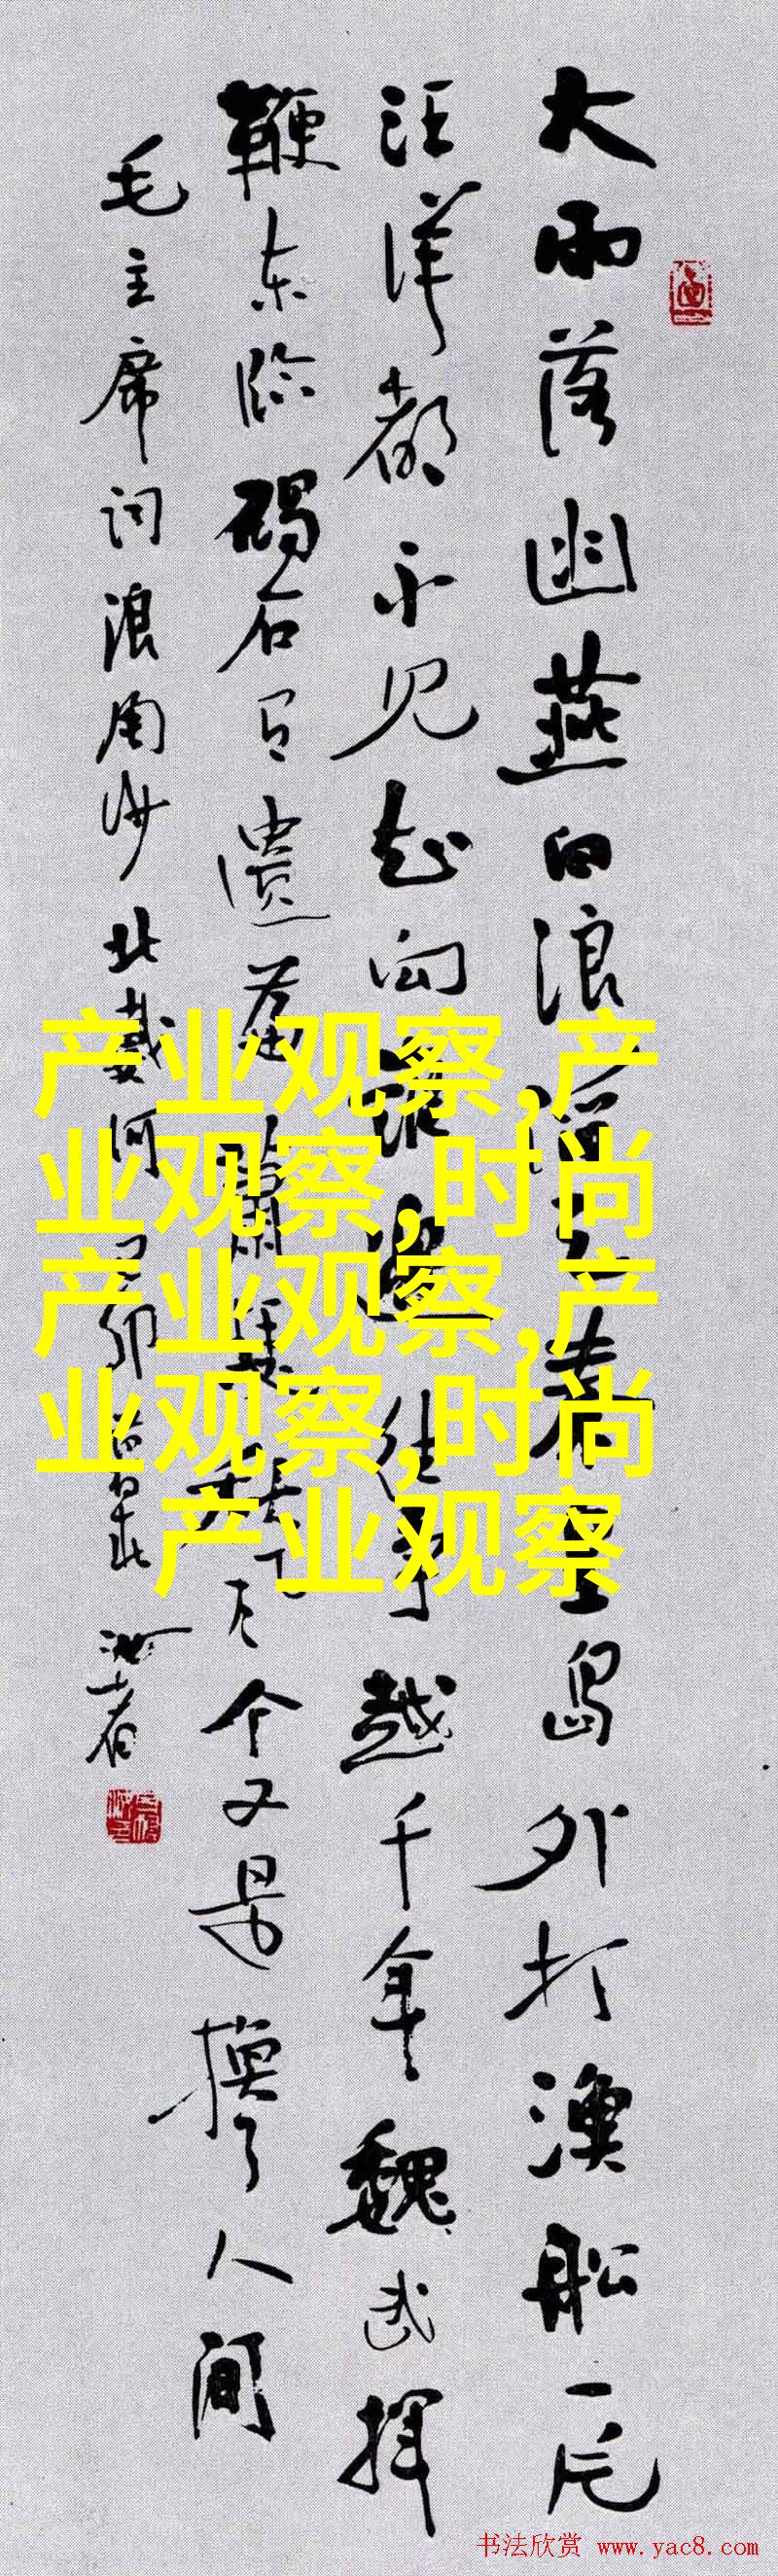 大雨落幽燕白浪滔天秦皇岛外打漁船一片
汪洋都不见知向谁邊往事越千年魏武揮
鞭东临碣石有遗篇萧瑟秋风今又是换了人间
毛主席词浪淘沙北戴河己卯暮春
产业观察,产
业观察,时尚
产业观察,产
业观察,时尚
产业观察
书法欣赏 www.yac8.com